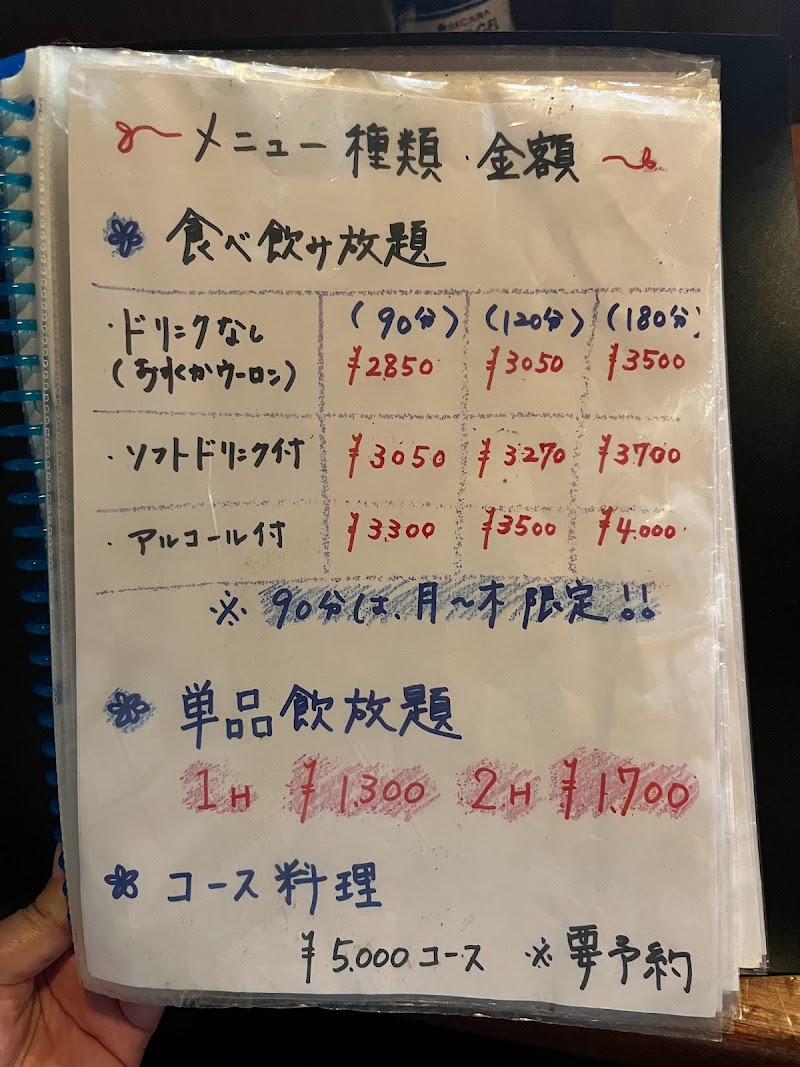 メニュー 種類・金額
食べ飲み放題
・ドリンクなし (90分) (120分) (180分)
(おひやかウーロン) ¥2850 ¥3050 ¥3500
・ソフトドリンク付 ¥3050 ¥3270 ¥3700
・アルコール付 ¥3300 ¥3500 ¥4.000
※ 90分は、月〜木 限定!!
単品飲放題
1H ¥1.300 2H ¥1.700
コース料理
¥5.000コース ※要予約